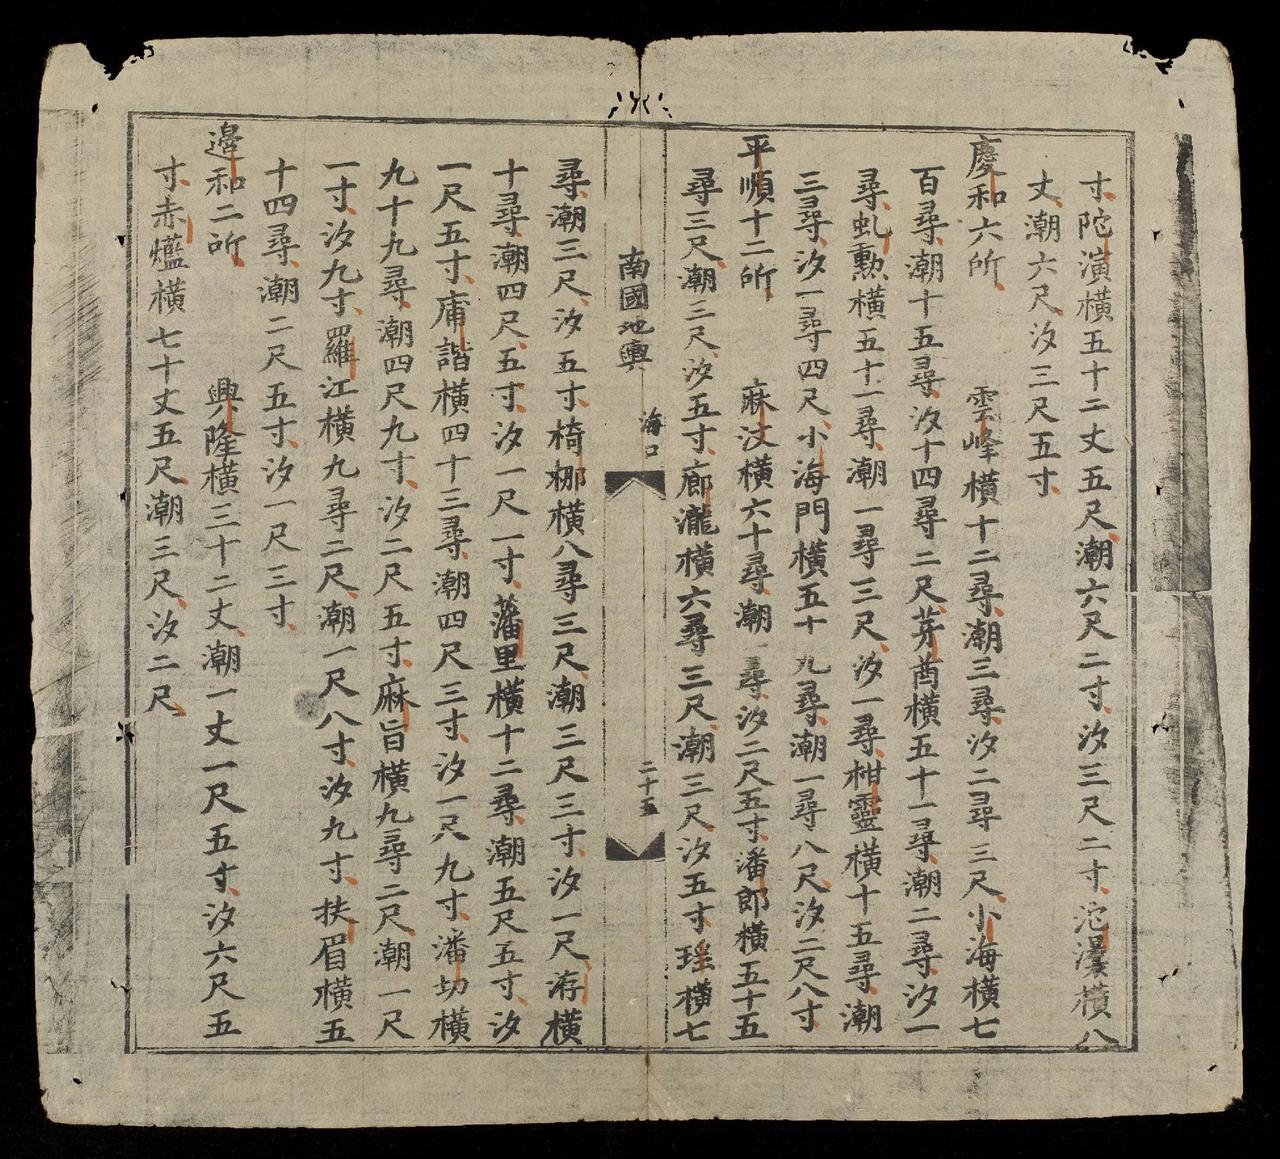 寸陀演橫五十二丈五尺潮六尺二寸汐三尺二寸沱㵢橫八
丈潮六尺汐三尺五寸
慶和六所 雲峰橫十二尋潮三尋汐二尋三尺小海橫七
百尋潮十五尋汐十四尋二尺芽酋橫五十一尋潮二尋汐一
尋虬勲橫五十一尋潮一尋三尺汐一尋柑靈橫十五尋潮
三尋汐一尋四尺小海門橫五十九尋潮一尋八尺汐二尺八寸
平順十二所 麻汶橫六十尋潮一尋汐二尺五寸潘郎橫五十五
尋三尺潮三尺汐五寸廊瀧橫六尋三尺潮三尺汐五寸瑶橫七
南國地輿 海口 二十五
尋潮三尺汐五寸椅梛橫八尋三尺潮三尺三寸汐一尺洊橫
十尋潮四尺五寸汐一尺一寸藩里橫十二尋潮五尺五寸汐
一尺五寸庯諧橫四十三尋潮四尺三寸汐一尺九寸潘切橫
九十九尋潮四尺九寸汐二尺五寸麻旨橫九尋二尺潮一尺
一寸汐九寸羅江橫九尋二尺潮一尺八寸汐九寸扶眉橫五
十四尋潮二尺五寸汐一尺三寸
邊和二所 興隆橫三十二丈潮一丈一尺五寸汐六尺五
寸赤爐橫七十丈五尺潮三尺汐二尺